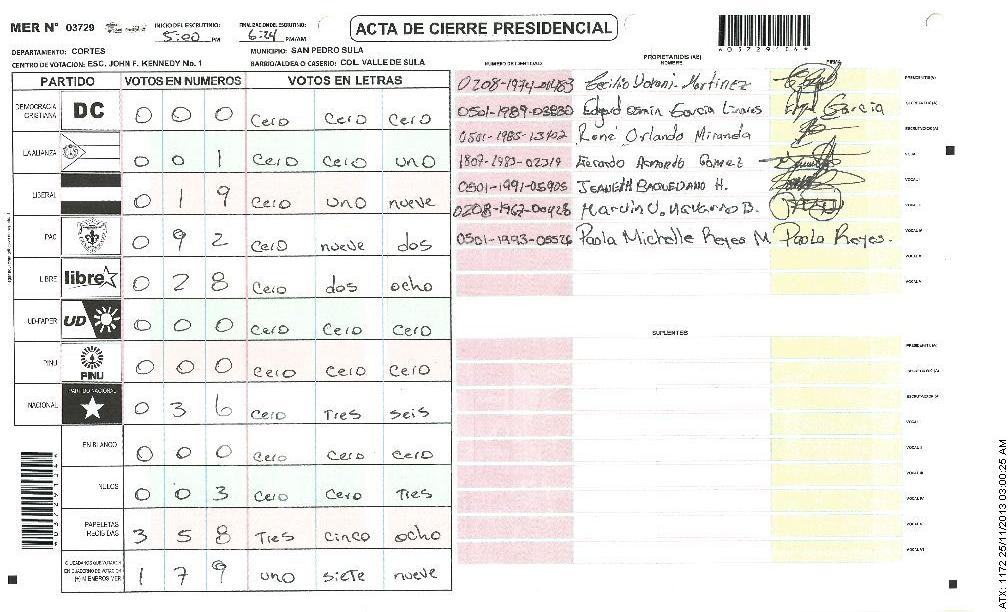 MER N° 03729 INICIO DEL ESCRUTINIO: 5:00 PM FINALIZACION DEL ESCRUTINIO: 6:24 PM/AM ACTA DE CIERRE PRESIDENCIAL
DEPARTAMENTO: CORTES MUNICIPIO: SAN PEDRO SULA
CENTRO DE VOTACION: ESC. JOHN F. KENNEDY No. 1 BARRIO/ALDEA O CASERIO: COL. VALLE DE SULA
PARTIDO VOTOS EN NUMEROS VOTOS EN LETRAS
DEMOCRACIA CRISTIANA DC 0 0 0 Cero Cero Cero
LA ALIANZA 0 0 1 Cero Cero uno
LIBERAL 0 1 9 Cero uno nueve
PAC 0 9 2 Cero nueve dos
LIBRE libre 0 2 8 Cero dos ocho
UD-FAPER UD 0 0 0 Cero Cero Cero
PINU PINU 0 0 0 Cero Cero Cero
NACIONAL PARTIDO NACIONAL 0 3 6 Cero Tres seis
EN BLANCO 0 0 0 Cero Cero Cero
NULOS 0 0 3 Cero Cero Tres
PAPELETAS RECIBIDAS 3 5 8 Tres cinco ocho
CIUDADANOS QUE VOTARON EN CUADERNO DE VOTACION (+) MIEMBROS MER 1 7 9 uno siete nueve
NUMERO DE IDENTIDAD PROPIETARIOS (AS) NOMBRE FIRMA
Martinez PRESIDENTE(A)
0501-1989-03830 Edgard Osmin Garcia Linares Edgar Garcia SECRETARIO(A)
0501-1985-13402 René Orlando Miranda ESCRUTADOR(A)
1807-1983-02319 Gerardo Armando Gomez
0501-1991-05905 JEANETH BAQUEDANO H. VOCAL I
0208-1962-00428 Marvin U. Navarro B.
0501-1993-05526 Paola Michelle Reyes M Paola Reyes.
SUPLENTES
PRESIDENTE(A)
SECRETARIO(A)
ESCRUTADOR(A)
VOCAL I
VOCAL II
VOCAL III
VOCAL IV
VOCAL V
VOCAL VI
ATX: 1172 25/11/2013 03:00:25 AM